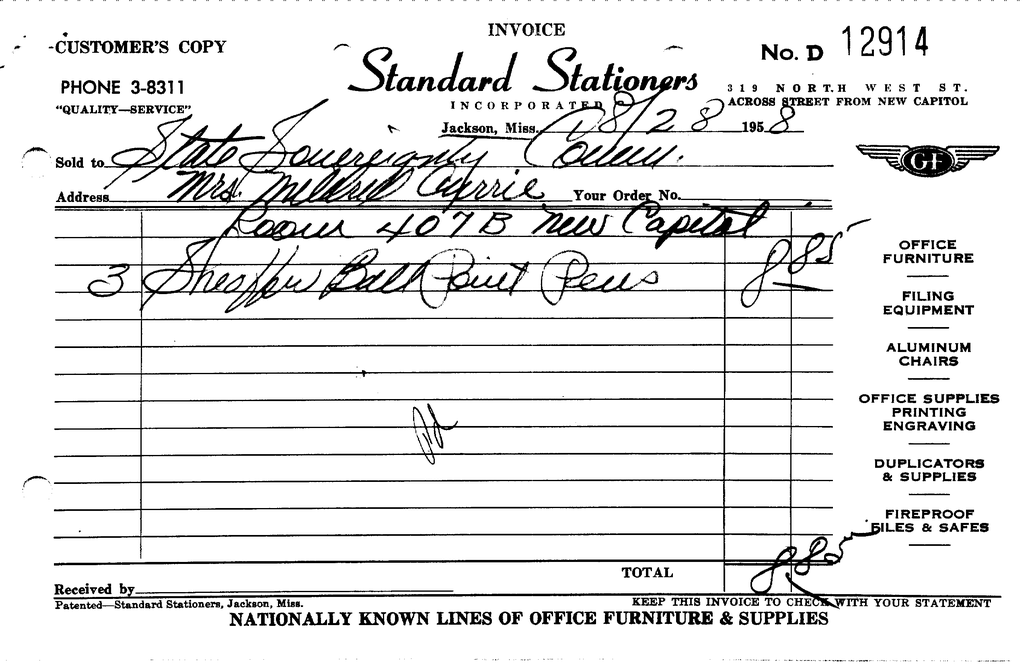 INVOICE
CUSTOMER'S COPY
No. D 12914
PHONE 3-8311
Standard Stationers
"QUALITY—SERVICE"
INCORPORATED
319 NORTH WEST ST.
ACROSS STREET FROM NEW CAPITOL
Jackson, Miss. 8/28 1958
Sold to State Sovereignty Comm.
Address Mrs. Mildred Currie Your Order No.
Room 407B New Capitol
3 Sheaffer Ball Point Pens 8 85
GF
OFFICE
FURNITURE
FILING
EQUIPMENT
ALUMINUM
CHAIRS
OFFICE SUPPLIES
PRINTING
ENGRAVING
DUPLICATORS
& SUPPLIES
FIREPROOF
FILES & SAFES
Pd
TOTAL 8 85
Received by
Patented—Standard Stationers, Jackson, Miss.
KEEP THIS INVOICE TO CHECK WITH YOUR STATEMENT
NATIONALLY KNOWN LINES OF OFFICE FURNITURE & SUPPLIES